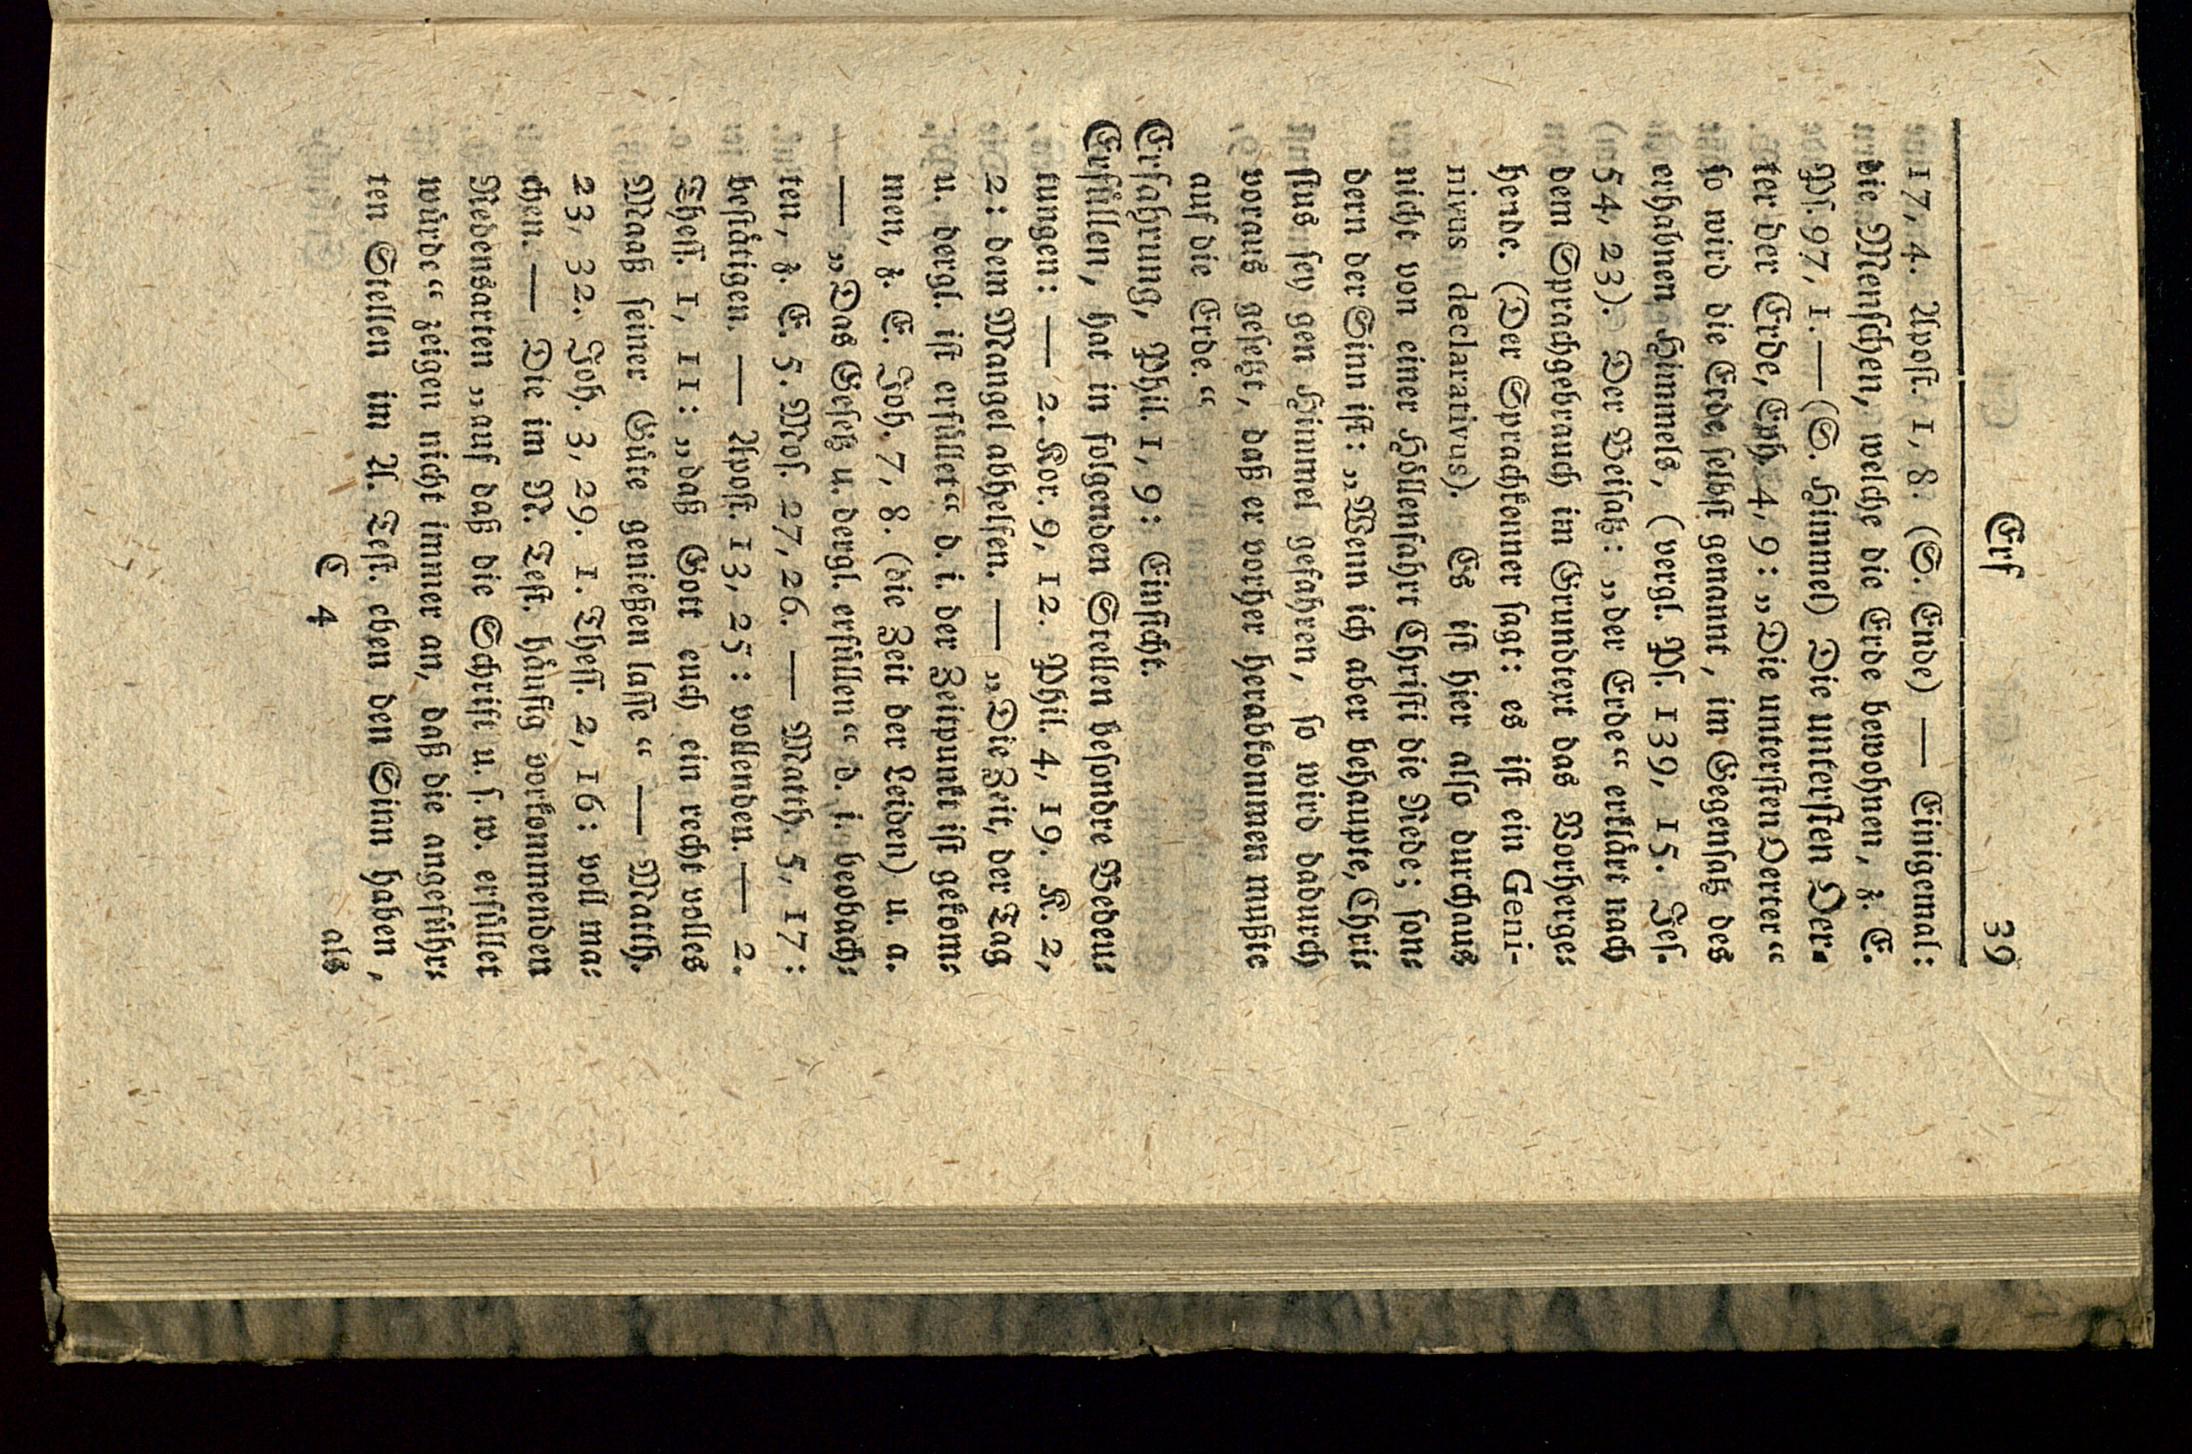 Erf 39
17, 4. Apost. 1, 8. (S. Ende) — Einigemal:
die Menschen, welche die Erde bewohnen, z. E.
Ps. 97, 1. — (S. Himmel) Die untersten Oer-
ter der Erde, Eph. 4, 9: „Die untersten Oerter“
so wird die Erde selbst genannt, im Gegensatz des
erhabnen Himmels, (vergl. Ps. 139, 15. Jes.
54, 23). Der Beisatz: „der Erde“ erklärt nach
dem Sprachgebrauch im Grundtext das Vorherge-
hende. (Der Sprachkenner sagt: es ist ein Geni-
nivus declarativus). Es ist hier also durchaus
nicht von einer Höllenfahrt Christi die Rede; son-
dern der Sinn ist: „Wenn ich aber behaupte, Chri-
stus sey gen Himmel gefahren, so wird dadurch
voraus gesetzt, daß er vorher herabkommen mußte
auf die Erde.“
Erfahrung, Phil. 1, 9: Einsicht.
Erfüllen, hat in folgenden Stellen besondre Bedeu-
tungen: — 2. Kor. 9, 12. Phil. 4, 19. K. 2,
2: dem Mangel abhelfen. — „Die Zeit, der Tag
u. dergl. ist erfüllet“ d. i. der Zeitpunkt ist gekom-
men, z. E. Joh. 7, 8. (die Zeit der Leiden) u. a.
— „Das Gesetz u. dergl. erfüllen“ d. i. beobach-
ten, z. E. 5. Mos. 27, 26. — Matth. 5, 17:
bestätigen. — Apost. 13, 25: vollenden. — 2.
Thess. 1, 11: „daß Gott euch ein recht volles
Maaß seiner Güte genießen lasse“ — Matth.
23, 32. Joh. 3, 29. 1. Thess. 2, 16: voll ma-
chen. — Die im N. Test. häufig vorkommenden
Redensarten „auf daß die Schrift u. s. w. erfüllet
würde“ zeigen nicht immer an, daß die angeführ-
ten Stellen im A. Test. eben den Sinn haben,
C 4 als